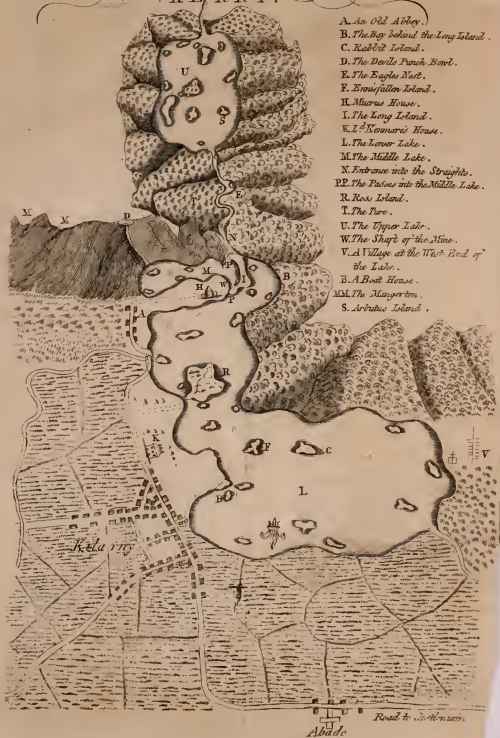 A. An Old Abbey.
B. The Bay behind the Long Island.
C. Rabbit Island.
D. The Devils Punch Bowl.
E. The Eagles Nest.
F. Ennisfallen Island.
H. Mucrus House.
I. The Long Island.
K. Ld. Kenmare's House.
L. The Lower Lake.
M. The Middle Lake.
N. Entrance into the Straights.
PP. The Passes into the Middle Lake.
R. Ross Island.
T. The Pore.
U. The Upper Lake.
W. The Shaft of the Mine.
V. A Village at the West End of
the Lake.
B. A Boat House.
MM. The Mangerton.
S. Arbutus Island.
U
S
E
M
M
D
M
P
B
H
W
P
A
R
K
F
C
V
L
B
Kilarny
Road to
Abade